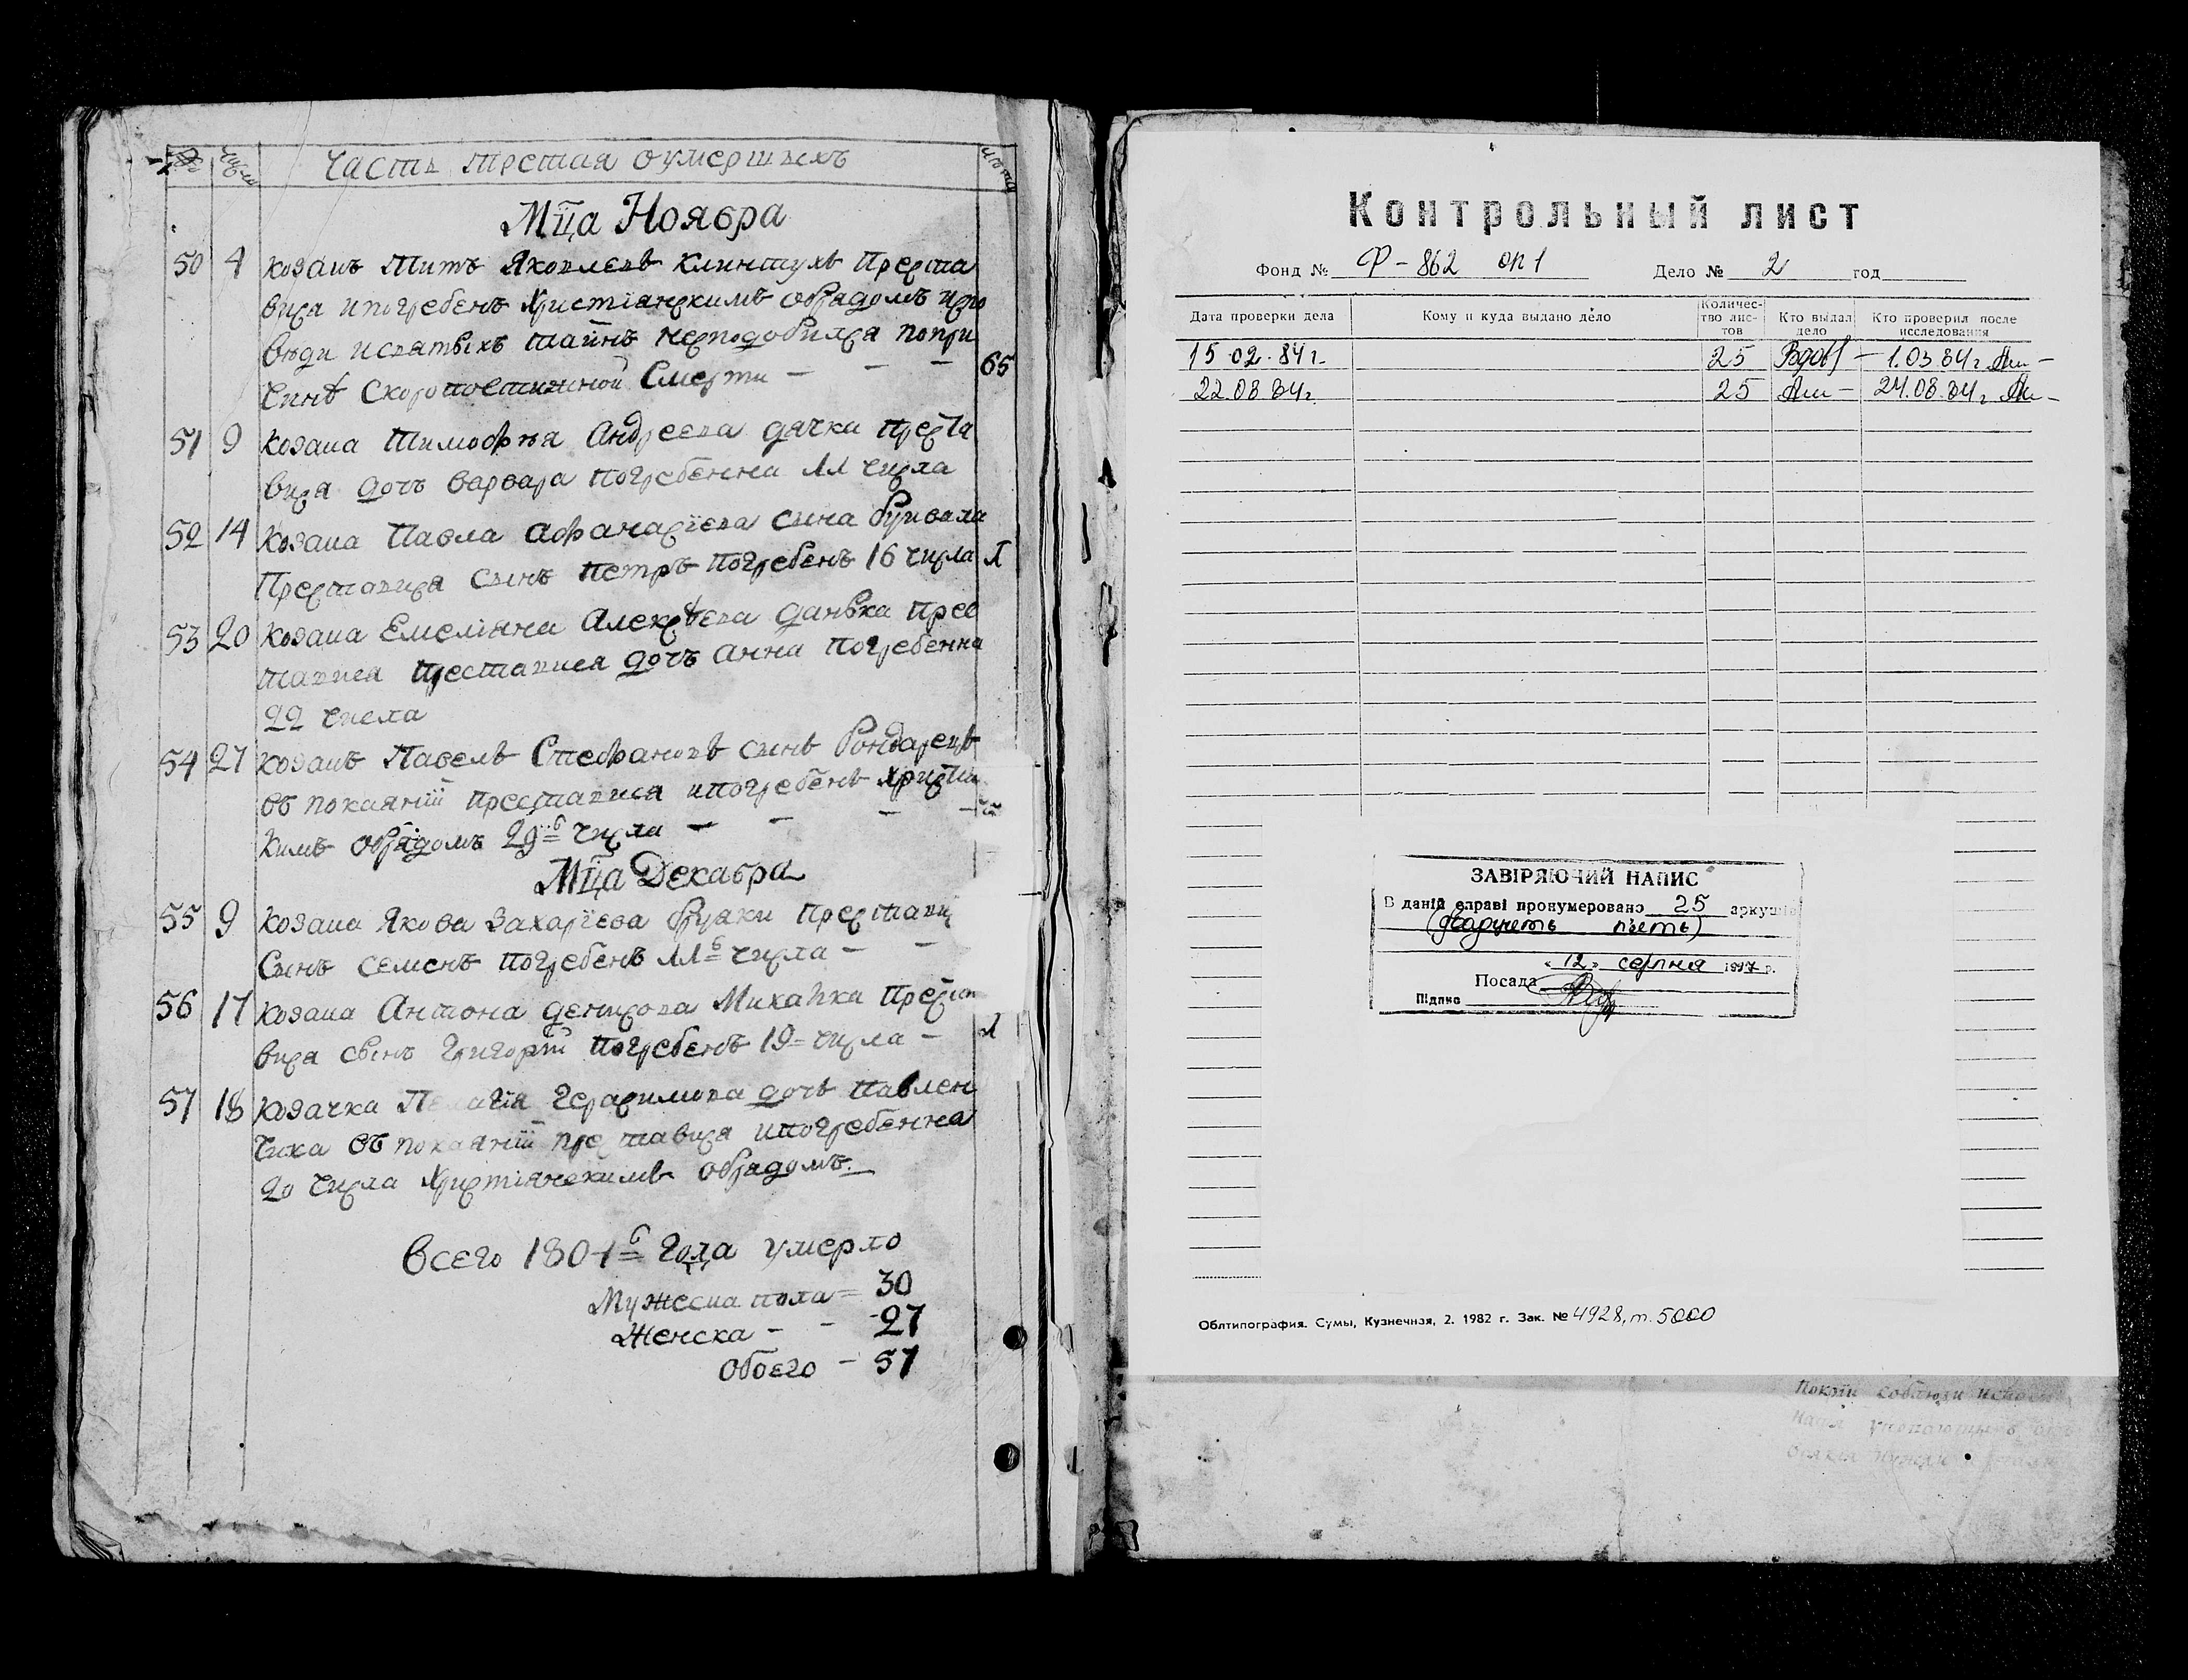 Число
Часть третая оумершыхъ
лѣта
Мц̃а Ноября
50 4 козакъ Титъ Яковлевъ Клинтухъ Преста
вися и погребенъ христіанскимъ обрядомъ испо
вѣди исвятыхъ таинъ несподобился попри
чинѣ Скоропостижной Смерти - - - 65
51 9 козака Тимофѣя Андреева дячка преста
вися дочъ варвара погребенна 11 числа
52 14 козака Павла Афанасіева сына
Преставися сынъ петръ погребенъ 16 числа 1
53 20 козака Емеліяна Алексѣева данька прес
тавися преставися дочъ анна погребенна
22 числа
54 27 козакъ Павелъ Стефановъ сынъ Бондаренко
въ покаяніи преставися и погребенъ христіанс
кимъ обрядомъ 29го числа - - - -
Мц̃а Декабря
55 9 козака Якова Захаріева преставися
Сынъ семенъ погребенъ 11го числа - -
56 17 козака Антона денисова Михайка преста
вися сынъ григорій погребенъ 19 числа - 1
57 18 козачка Пелагія Герасимова дочъ павлен
чиха въ покаяніи преставися и погребенна
20 числа христіанскимъ обрядомъ
Всего 1801го года умерло
Мужеска пола = 30
Женска - - 27
обоего - 57
Контрольный лист
Фонд № Ф-862 оп 1 Дело № 2 год
Дата проверки дела Кому и куда выдано дело Количес-тво лис-тов Кто выдал дело Кто проверил после исследования
15.02.84г. 25 1.03.84г.
22.08.84г. 25 24.08.84г.
ЗАВІРЯЮЧИЙ НАПИС
В даній справі пронумеровано 25 аркушів
(двадцять п'ять)
"12" серпня 1997 р.
Посада
Підпис
Облтипография. Сумы, Кузнечная, 2. 1982 г. Зак. № 4928, т. 5000